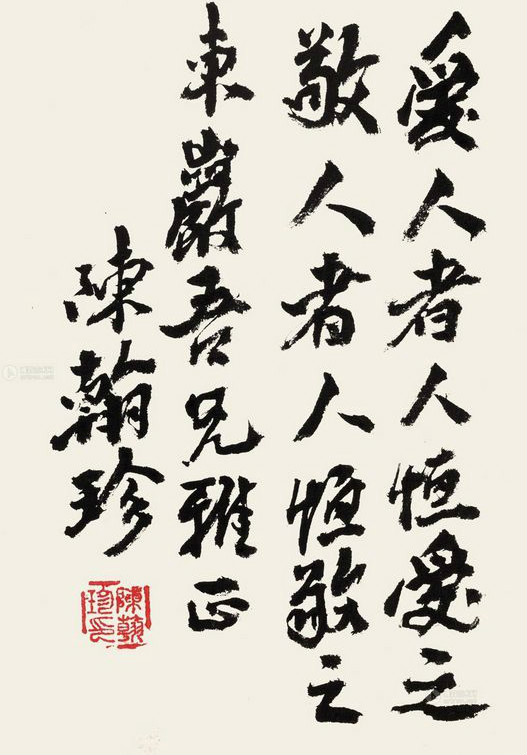 愛人者人恒愛之
敬人者人恒敬之
東巖吾兄雅正
陳翰珍
陳翰珍印